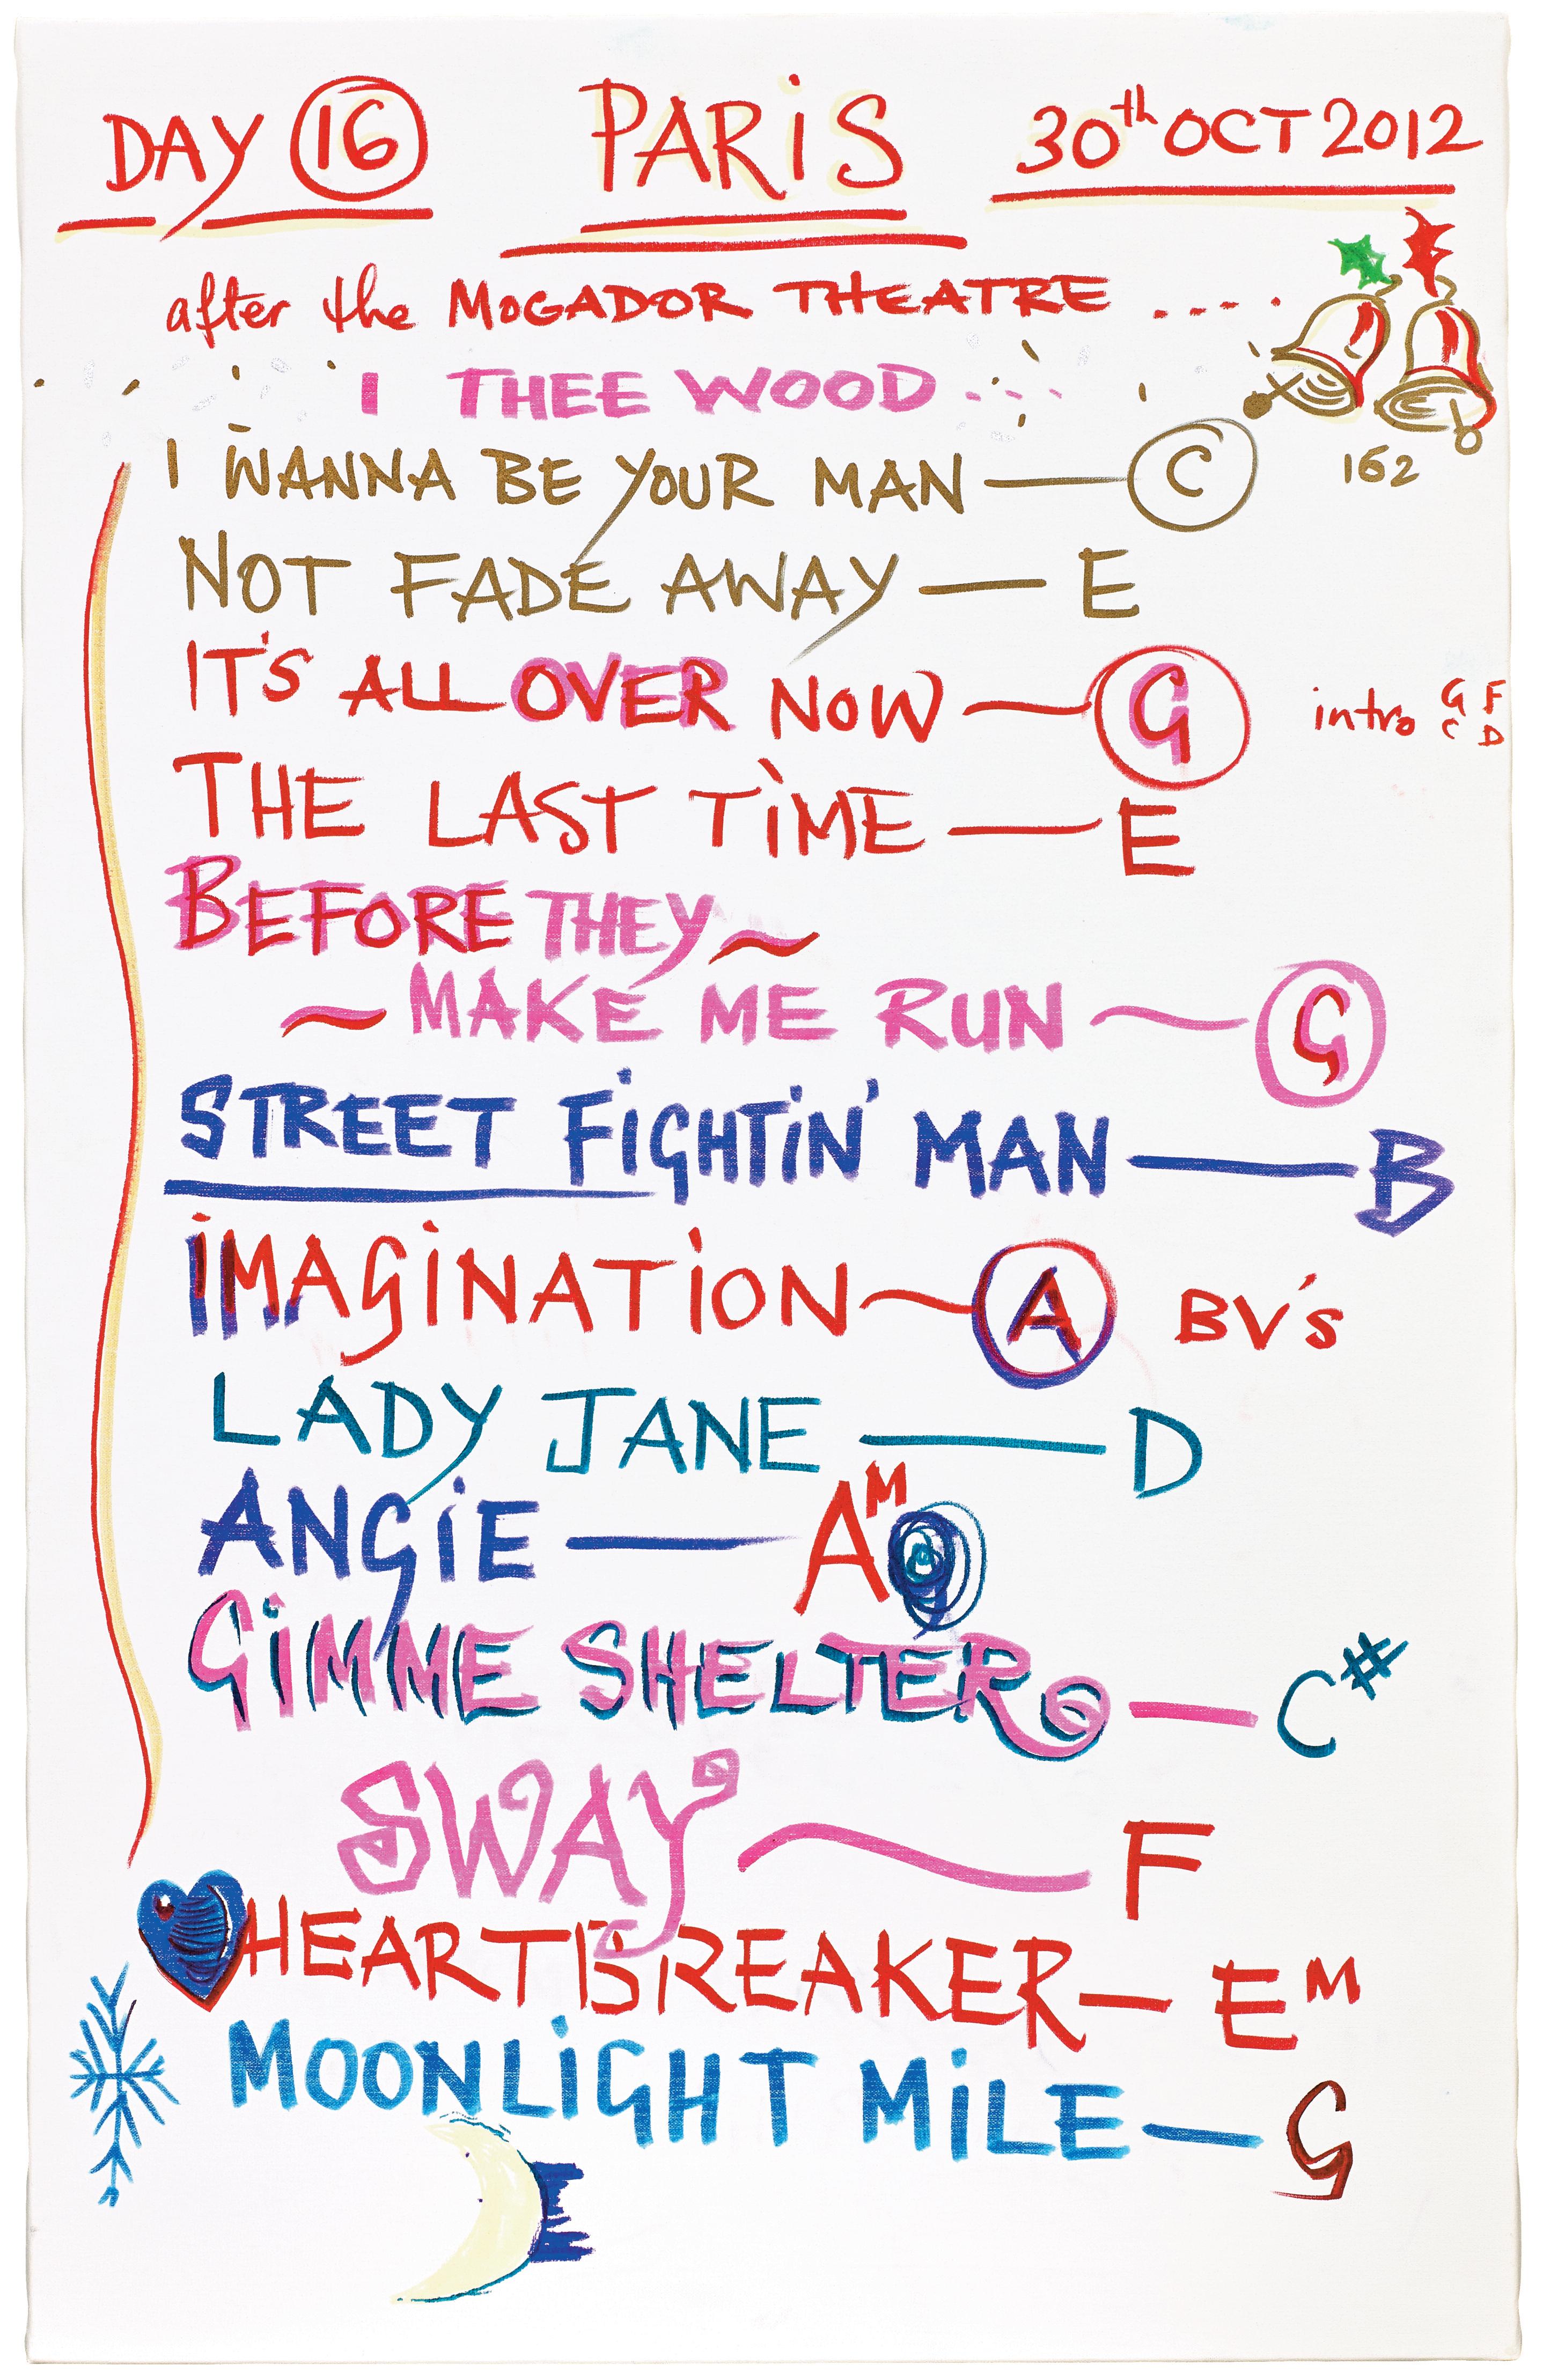 DAY 16 PARiS 30th OCT 2012
after the MOGADOR THEATRE ....
I THEE WOOD ...
I WANNA BE YOUR MAN — C 162
NOT FADE AWAY — E
IT'S ALL OVER NOW — G intro G F
C D
THE LAST TiME — E
BEFORE THEY ~
~ MAKE ME RUN ~ G
STREET FiGHTiN' MAN — B
iMAGiNATiON ~ A BV's
LADY JANE — D
ANGiE — AM
GiMME SHELTER — C#
SWAY ~ F
HEARTBREAKER — EM
MOONLiGHT MiLE — G